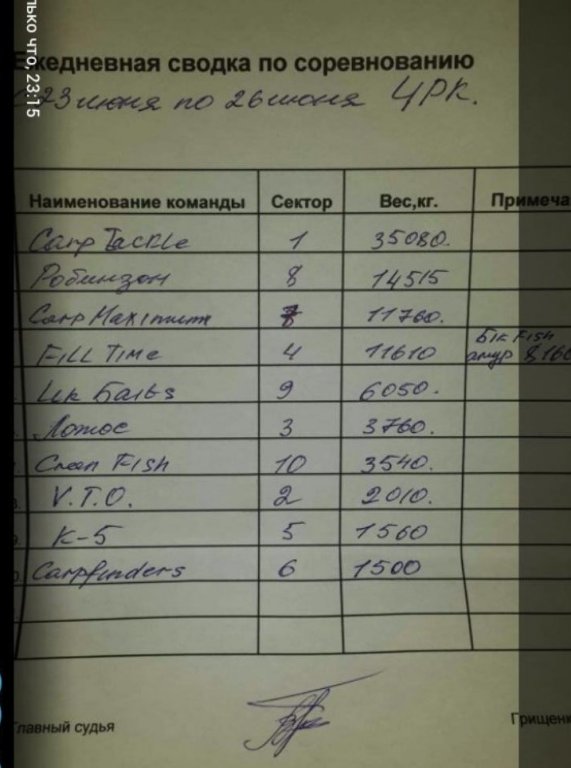 лько что, 23:15
Ежедневная сводка по соревнованию
С 23 июня по 26 июня ЦРК.
Наименование команды Сектор Вес,кг. Примеча
Carp Tackle 1 35080.
Робинзон 8 14515
Carp Maximum 7 11760.
Fill Time 4 11610 Бік Fish амур 8,160
9 6050.
Лотос 3 3760.
Fish 10 3540.
V.T.O. 2 2010.
K-5 5 1560
Carpfinders 6 1500
Главный судья Грищенк